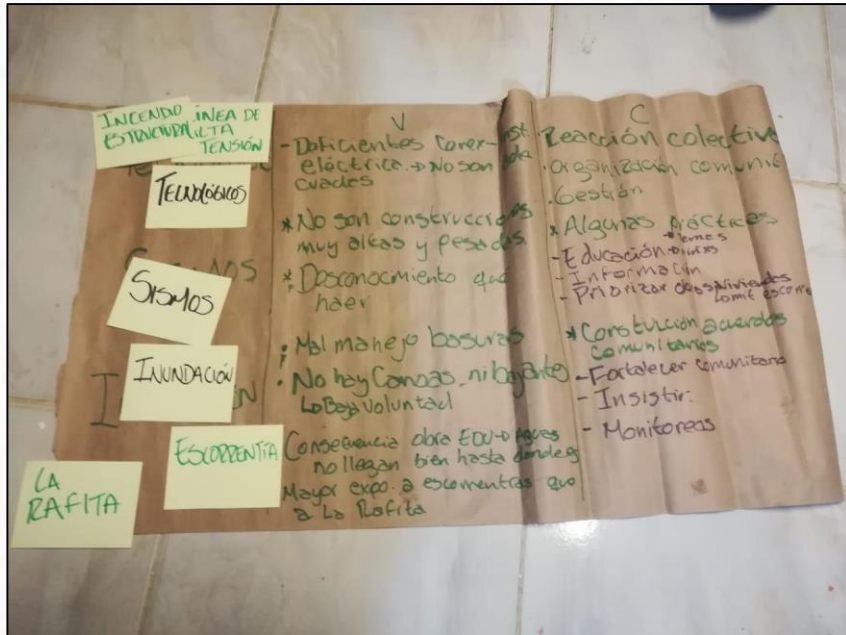 INCENDIO
ESTRUCTURAL
LÍNEA DE
ALTA
TENSIÓN
TECNOLÓGICOS
SISMOS
INUNDACIÓN
ESCORRENTÍA
LA
RAFITA
V
- Deficientes conex-
eléctrica. → No son
cuades
* No son construcciones
muy altas y pesadas.
* Desconocimiento qué
haer
Mal manejo basuras
No hay Canoas, ni bajantes
Baja Voluntad
Consecuencia obra EDU → Aguas
no llegan bien hasta donde es
Mayor expo. a escorrentías que
a La Rafita
C
Reacción colectiva
Organización comunit
Gestión
* Algunas prácticas
- Educación
- Información
- Priorizar
* Constución acuerdos
comunitarios
- Fortalecer comunitario
- Insistir:
- Monitoreos